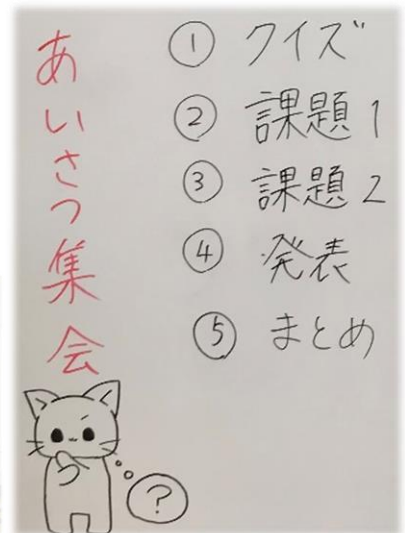 あいさつ集会
① クイズ
② 課題1
③ 課題2
④ 発表
⑤ まとめ
?